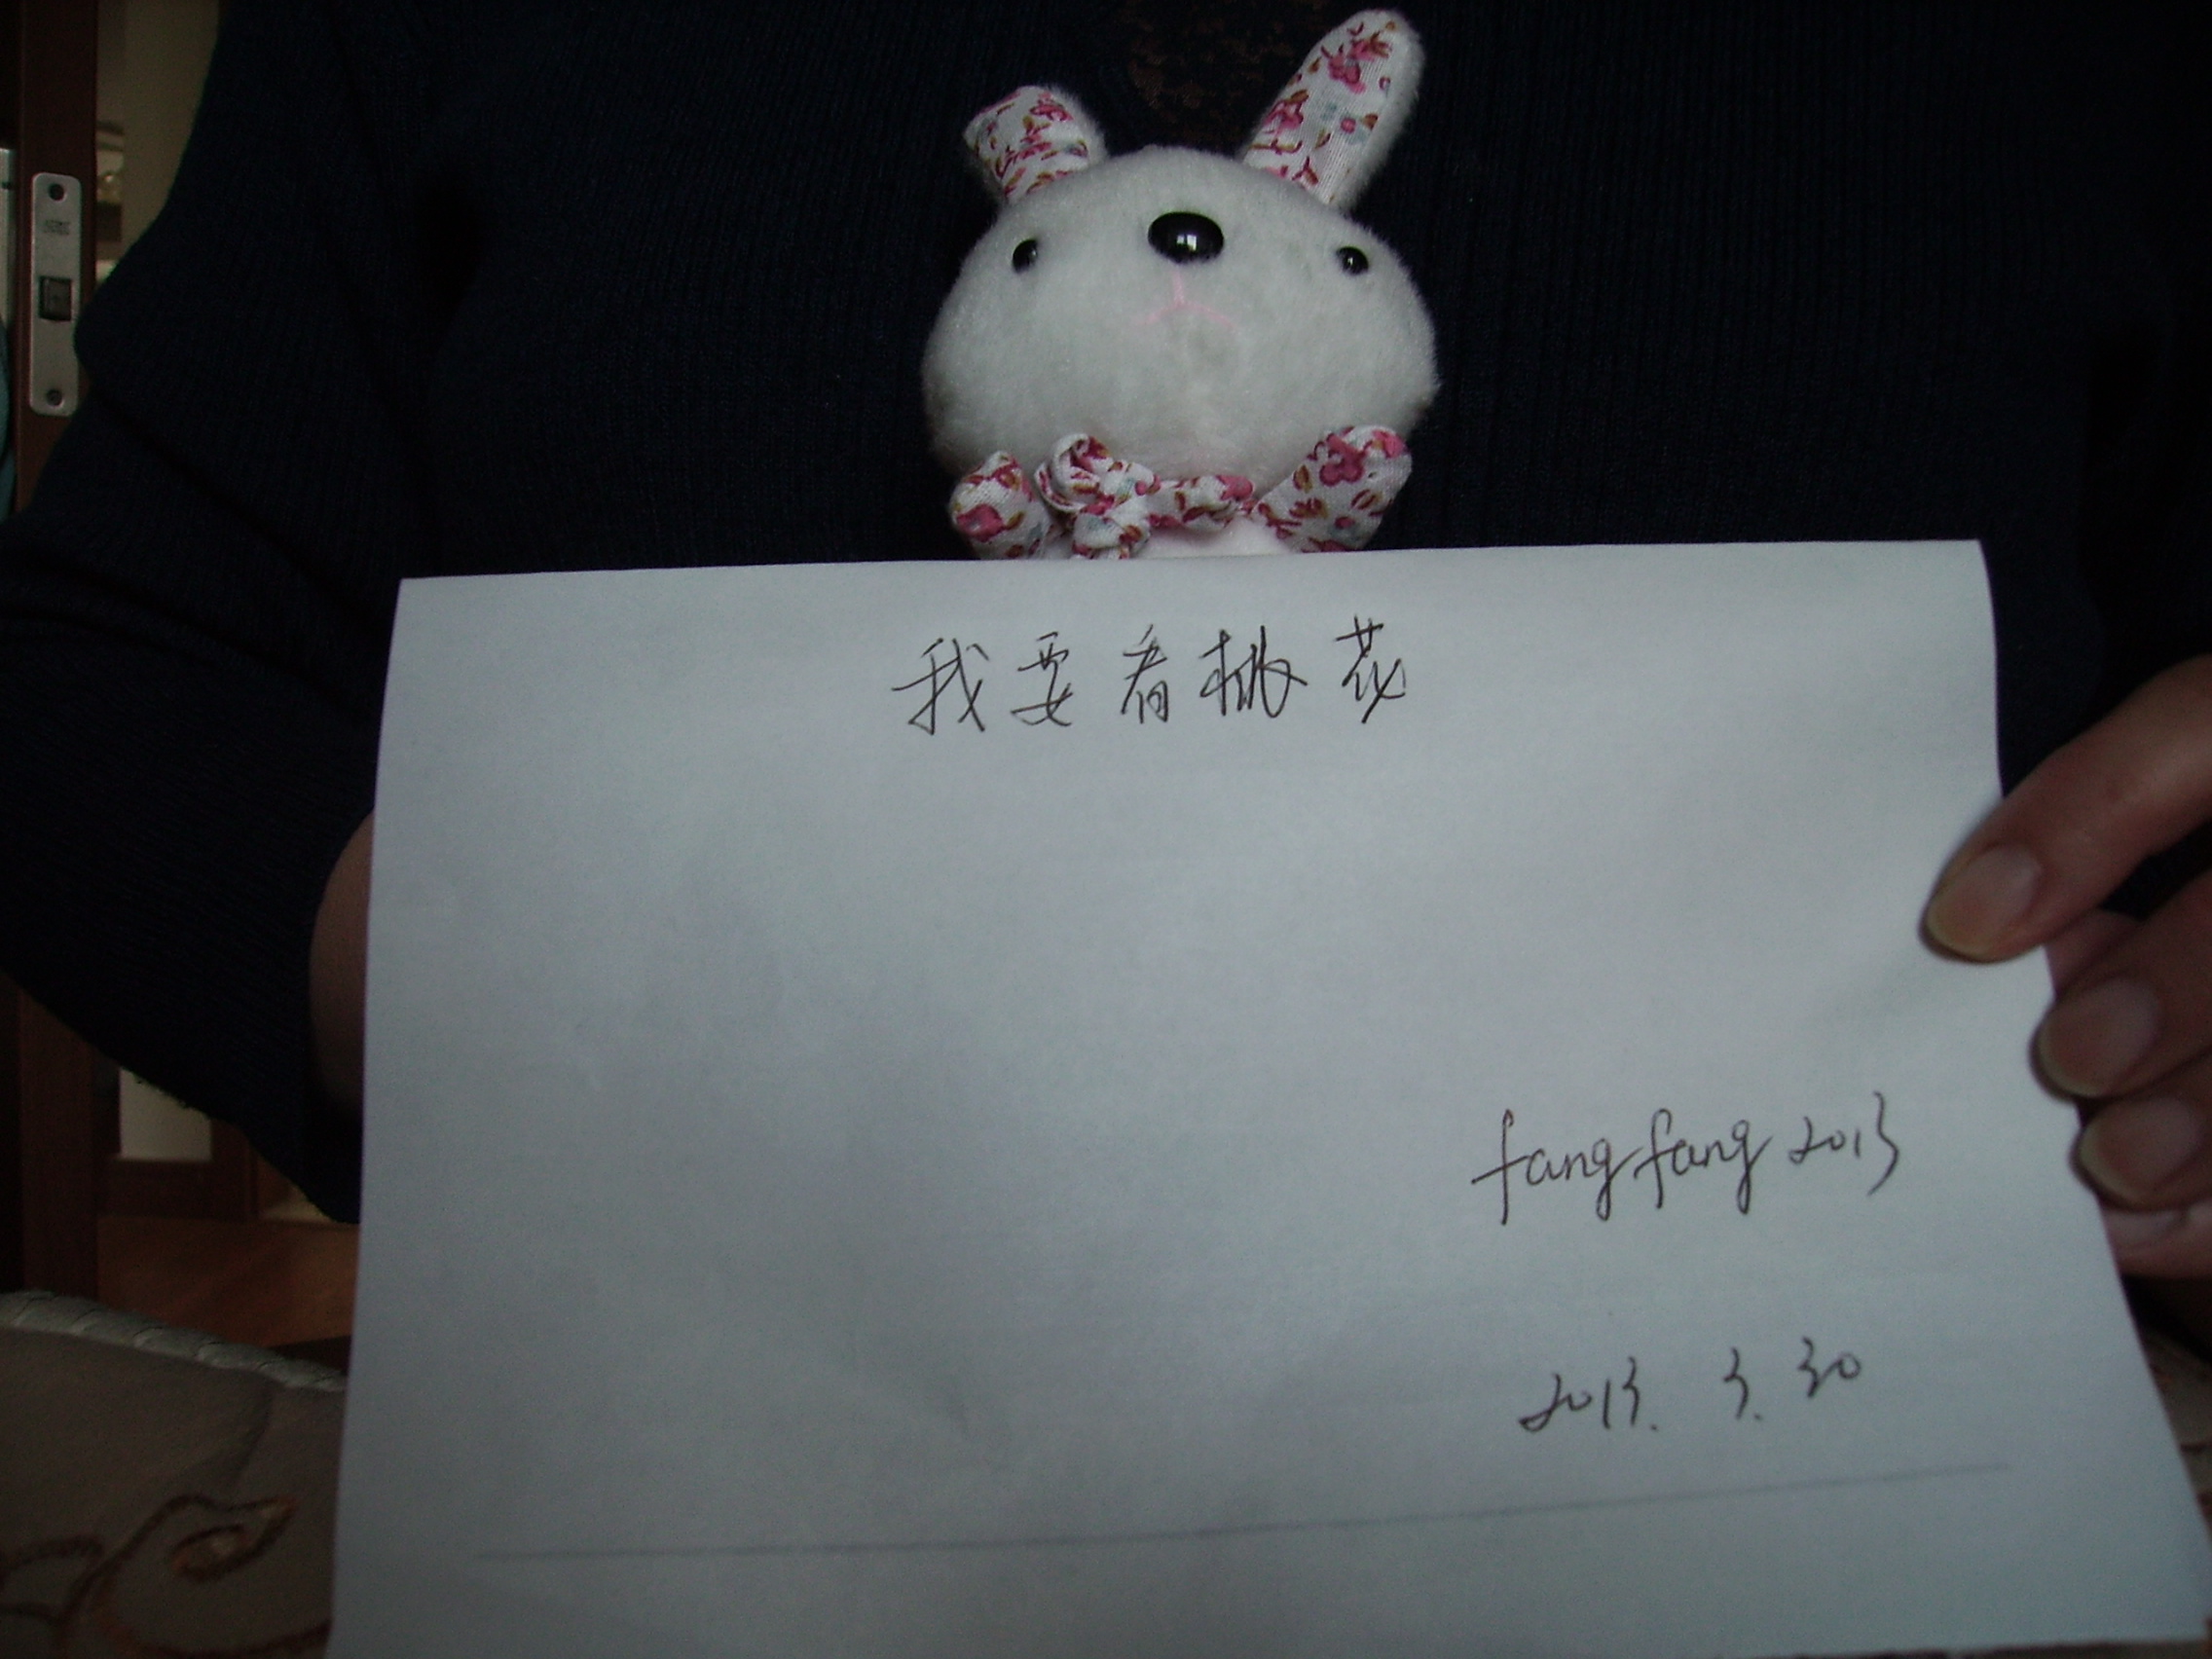 我要看桃花
fangfang2013
2013. 3. 30